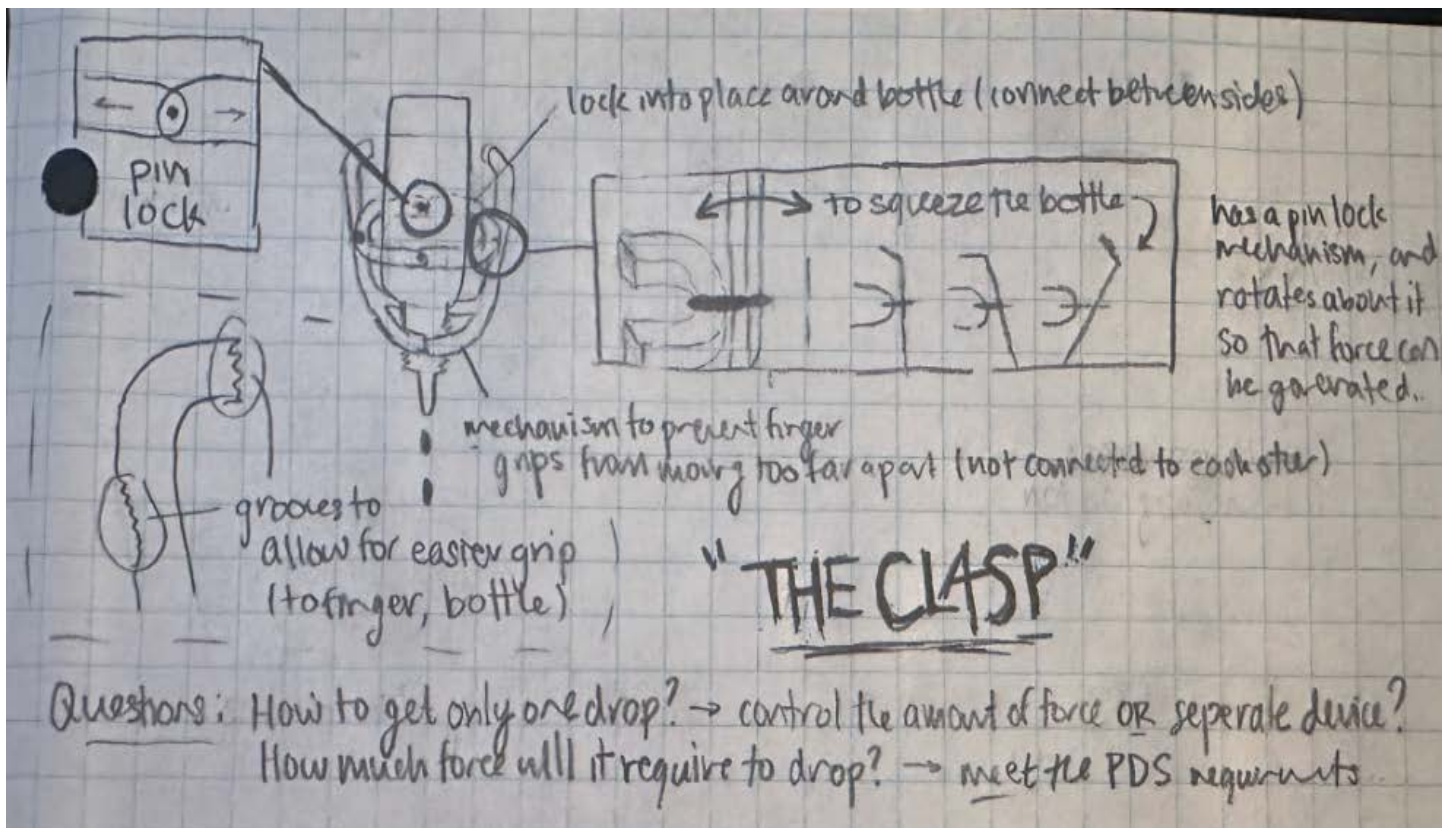 pin
lock
lock into place around bottle (connect between sides)
to squeeze the bottle
has a pin lock
mechanism, and
rotates about it
so that force can
be generated.
mechanism to prevent finger
grips from moving too far apart (not connected to each other)
grooves to
allow for easier grip
(to finger, bottle)
"THE CLASP"
Questions: How to get only one drop? → control the amount of force OR seperate device?
How much force will it require to drop? → meet the PDS requirments